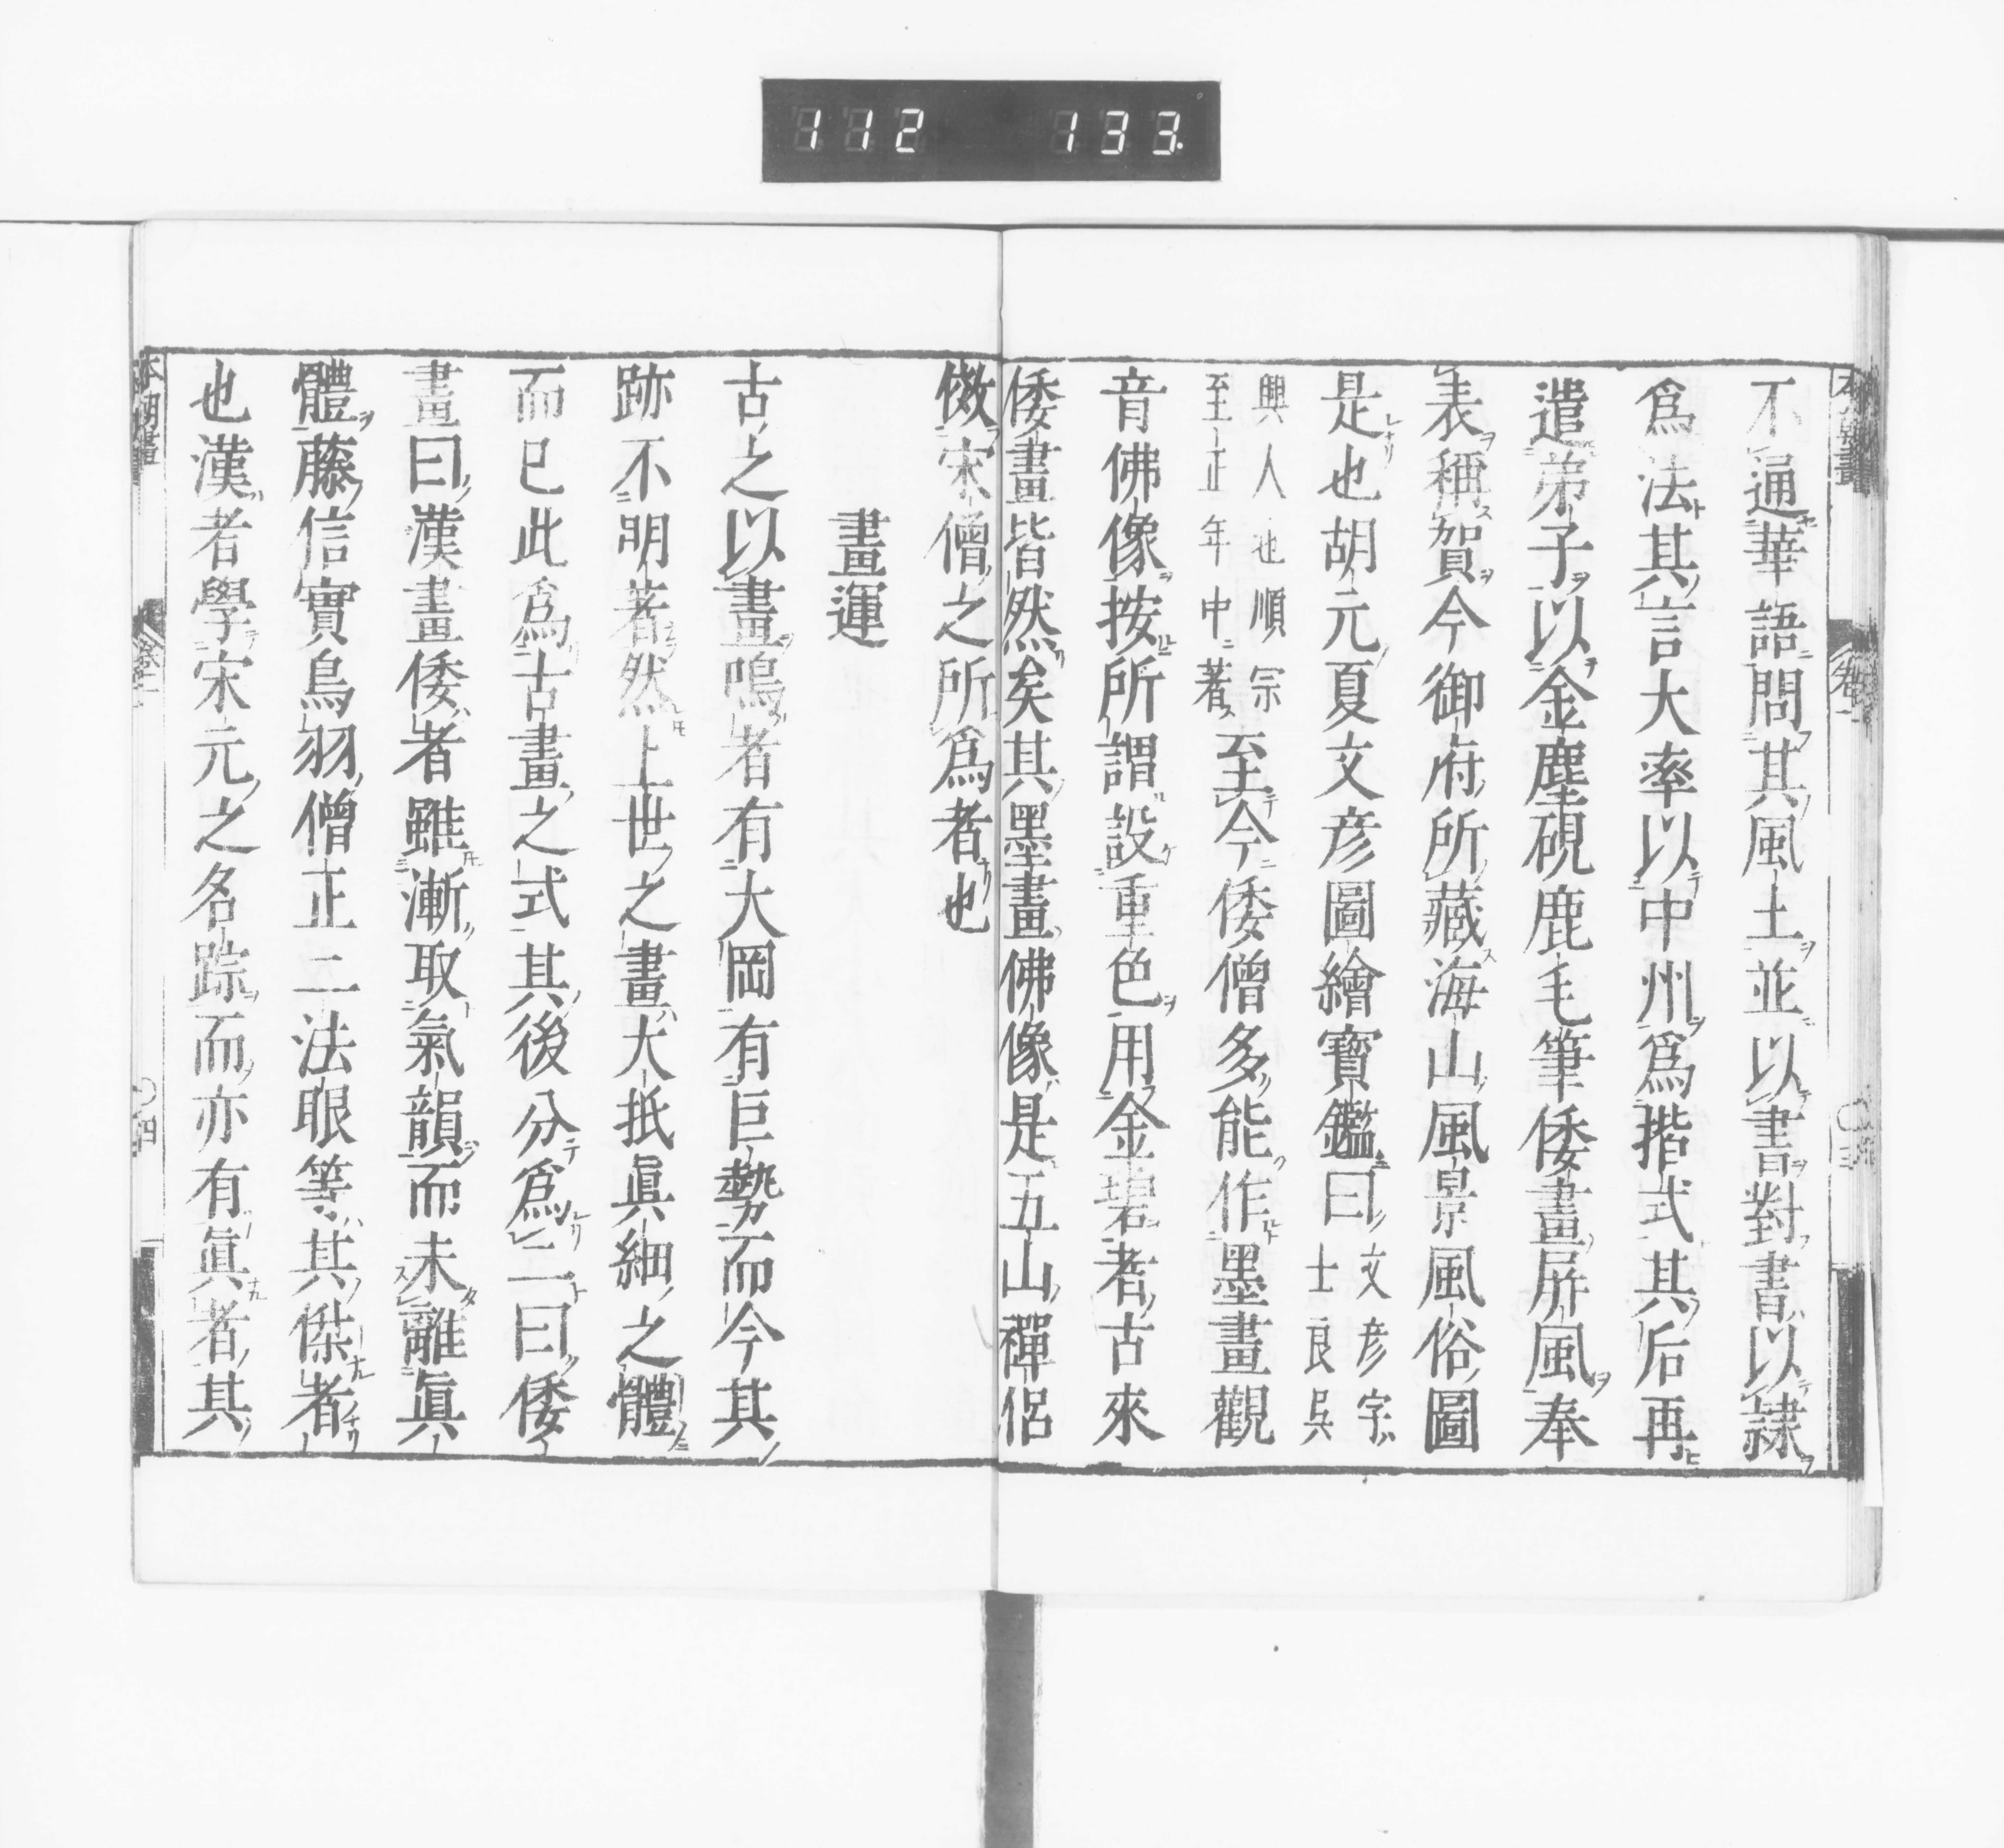 112 133
不通華語問其風土並以書對書以隷
爲法其言大率以中州爲揩式其后再
遣弟子以金塵硯鹿毛筆倭畫屏風奉
表稱賀今御府所藏海山風景風俗圖
是也胡元夏文彦圖繪寶鑑曰文彦字士良吳
興人也順宗至正年中著至今倭僧多能作墨畫觀
音佛像按所謂設重色用金碧者古來
倭畫皆然矣其墨畫佛像是五山禪侶
傚宋僧之所爲者也
畫運
古之以畫鳴者有大岡有巨勢而今其
跡不明著然上世之畫大抵眞細之體
而已此爲古畫之式其後分爲二曰倭
畫曰漢畫倭者雖漸取氣韻而未離眞
體藤信實鳥羽僧正二法眼等其傑者
也漢者學宋元之名踪而亦有眞者其
本朝畫